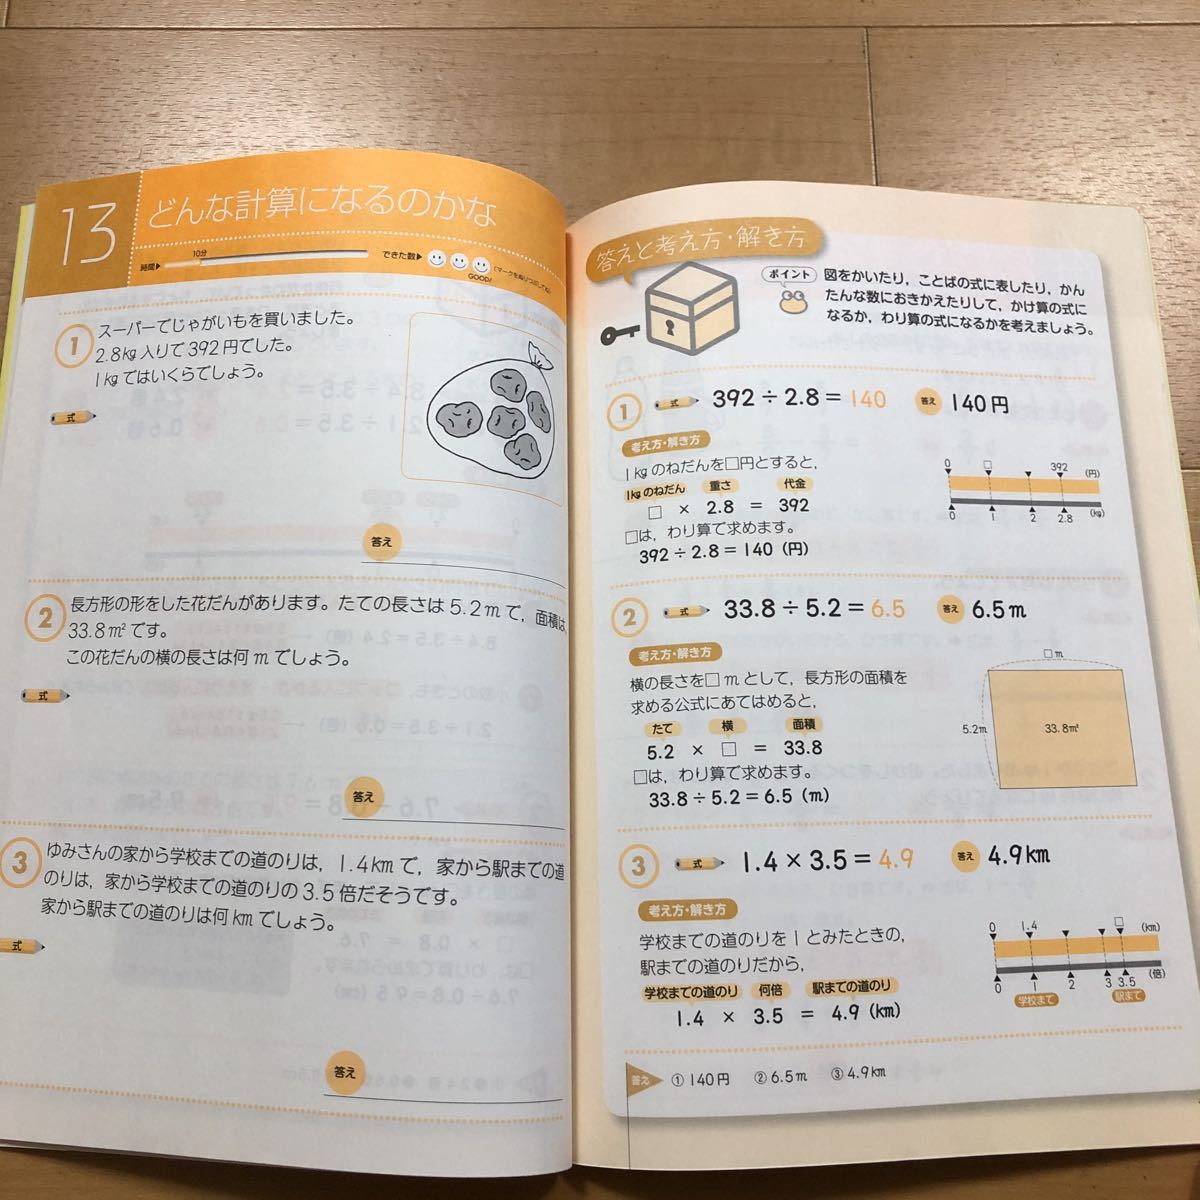 13
どんな計算になるのかな
時間▶
10分
できた数▶
(マークをぬりつぶしてね)
GOOD!
1
スーパーでじゃがいもを買いました。
2.8kg入りで392円でした。
1kgではいくらでしょう。
式
答え
2
長方形の形をした花だんがあります。たての長さは5.2mで,面積は,
33.8m²です。
この花だんの横の長さは何mでしょう。
式
答え
3
ゆみさんの家から学校までの道のりは,1.4kmで,家から駅までの道
のりは,家から学校までの道のりの3.5倍だそうです。
家から駅までの道のりは何kmでしょう。
式
答え
答えと考え方・解き方
ポイント
図をかいたり,ことばの式に表したり,かん
たんな数におきかえたりして,かけ算の式に
なるか,わり算の式になるかを考えましょう。
1 式 392÷2.8=140 答え 140円
考え方・解き方
1kgのねだんを□円とすると,
1kgのねだん 重さ 代金
□ × 2.8 = 392
□は,わり算で求めます。
392÷2.8=140(円)
0 □ 392 (円)
0 1 2 2.8 (kg)
2 式 33.8÷5.2=6.5 答え 6.5m
考え方・解き方
横の長さを□mとして,長方形の面積を
求める公式にあてはめると,
たて 横 面積
5.2 × □ = 33.8
□は,わり算で求めます。
33.8÷5.2=6.5(m)
□m
5.2m
33.8m²
3 式 1.4×3.5=4.9 答え 4.9km
考え方・解き方
学校までの道のりを1とみたときの,
駅までの道のりだから,
学校までの道のり 何倍 駅までの道のり
1.4 × 3.5 = 4.9(km)
0 1.4 □ (km)
0 1 2 3 3.5 (倍)
学校まで 駅まで
答え ①140円 ②6.5m ③4.9km